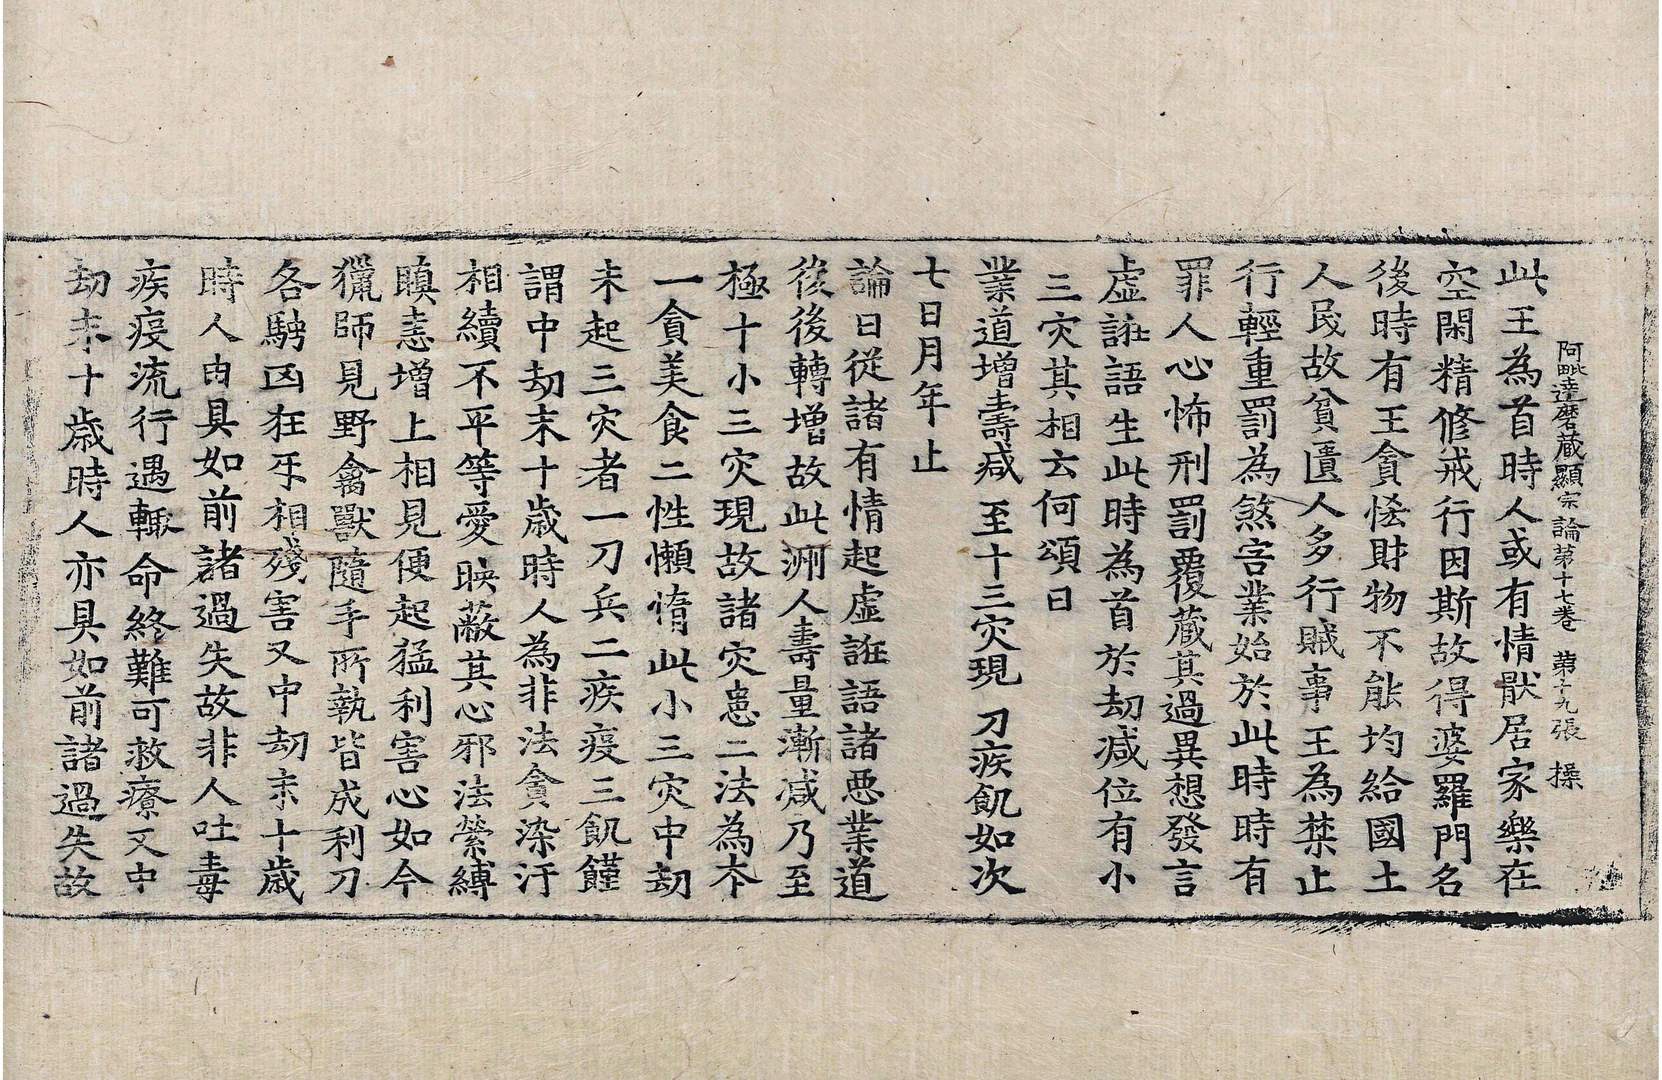 阿毗達磨蔵顯宗論第十七卷 第十九張 操
此王為首時人或有情猒居家樂在
空閑精修戒行因斯故得婆羅門名
後時有王貪悋財物不能均給國土
人民故貧匱人多行賊事王為禁止
行輕重罰為煞害業始於此時時有
罪人心怖刑罰覆蔵其過異想發言
虛誑語生此時為首於劫減位有小
三灾其相云何頌曰
業道增壽減 至十三灾現 刀疾飢如次
七日月年止
論曰從諸有情起虛誑語諸惡業道
後後轉增故此洲人壽量漸減乃至
極十小三灾現故諸灾患二法為本
一貪美食二性懶惰此小三灾中劫
末起三灾者一刀兵二疾疫三飢饉
謂中劫末十歲時人為非法貪染汙
相續不平等愛映蔽其心邪法縈縛
瞋恚增上相見便起猛利害心如今
獵師見野禽獸隨手所執皆成利刀
各騁凶狂互相殘害又中劫末十歲
時人由具如前諸過失故非人吐毒
疾疫流行遇輙命終難可救療又中
劫末十歲時人亦具如前諸過失故